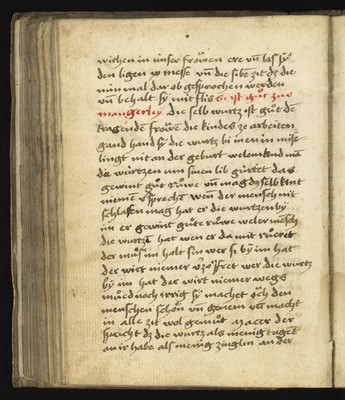 wichen in unser fröwen ere un̄ las sÿ
den ligen xp messe un̄ die sibe zit dz die
nün mal dar ob gesprochen werden
un̄ behalt sÿ mit flis ist güt zuo
mangerleÿ die selb wurtz ist güt den
tragende fröwē die kindes ze arbeiten
gand hand sÿ die wurtz bi inen in misse
lingt nit an der geburt welem kind mā
die würtzen um sinen lib gürtet das
gewint guͦt ruͦwe un̄ mag dz selb kint
niemen wen der mensch nit
schlaffen mag hat er die wurtzen bÿ
im er gewint guͦte ruͦwe weler mēsch
die wurtzē hat wen er da mit ruͤret
der muͦs im halt sin wer si bÿ im hat
der wirt niemer wer die wurtz
bÿ im hat der wirt niemer wegs
muͤed noch irrig sÿ machet öch den
menschen schön un̄ genem un̄ macht
in alle zit wol gemuͦt macer der
spricht dz die wurtz als menig tuget
an ir habe als menig zinglin an der